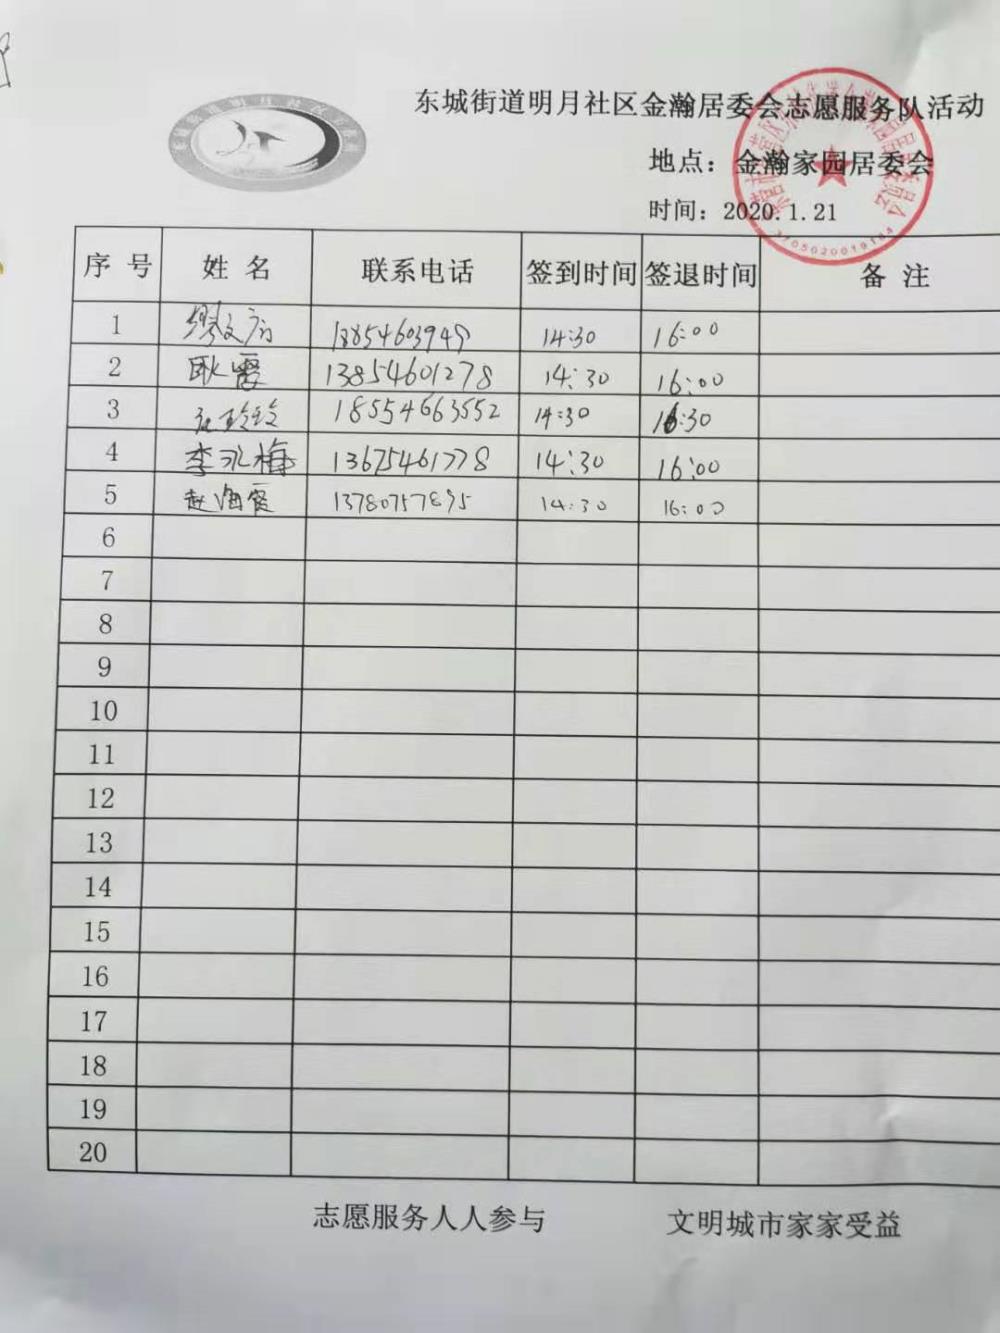 东城街道明月社区金瀚居委会志愿服务队活动
地点：金瀚家园居委会
时间：2020.1.21
序 号 姓 名 联系电话 签到时间 签退时间 备 注
1 13854603949 14:30 16:00
2 耿霞 13854601278 14:30 16:00
3 18554663552 14:30 16:30
4 李永梅 13675461778 14:30 16:00
5 赵海霞 13780757895 14:30 16:00
6
7
8
9
10
11
12
13
14
15
16
17
18
19
20
志愿服务人人参与 文明城市家家受益
3705020019184